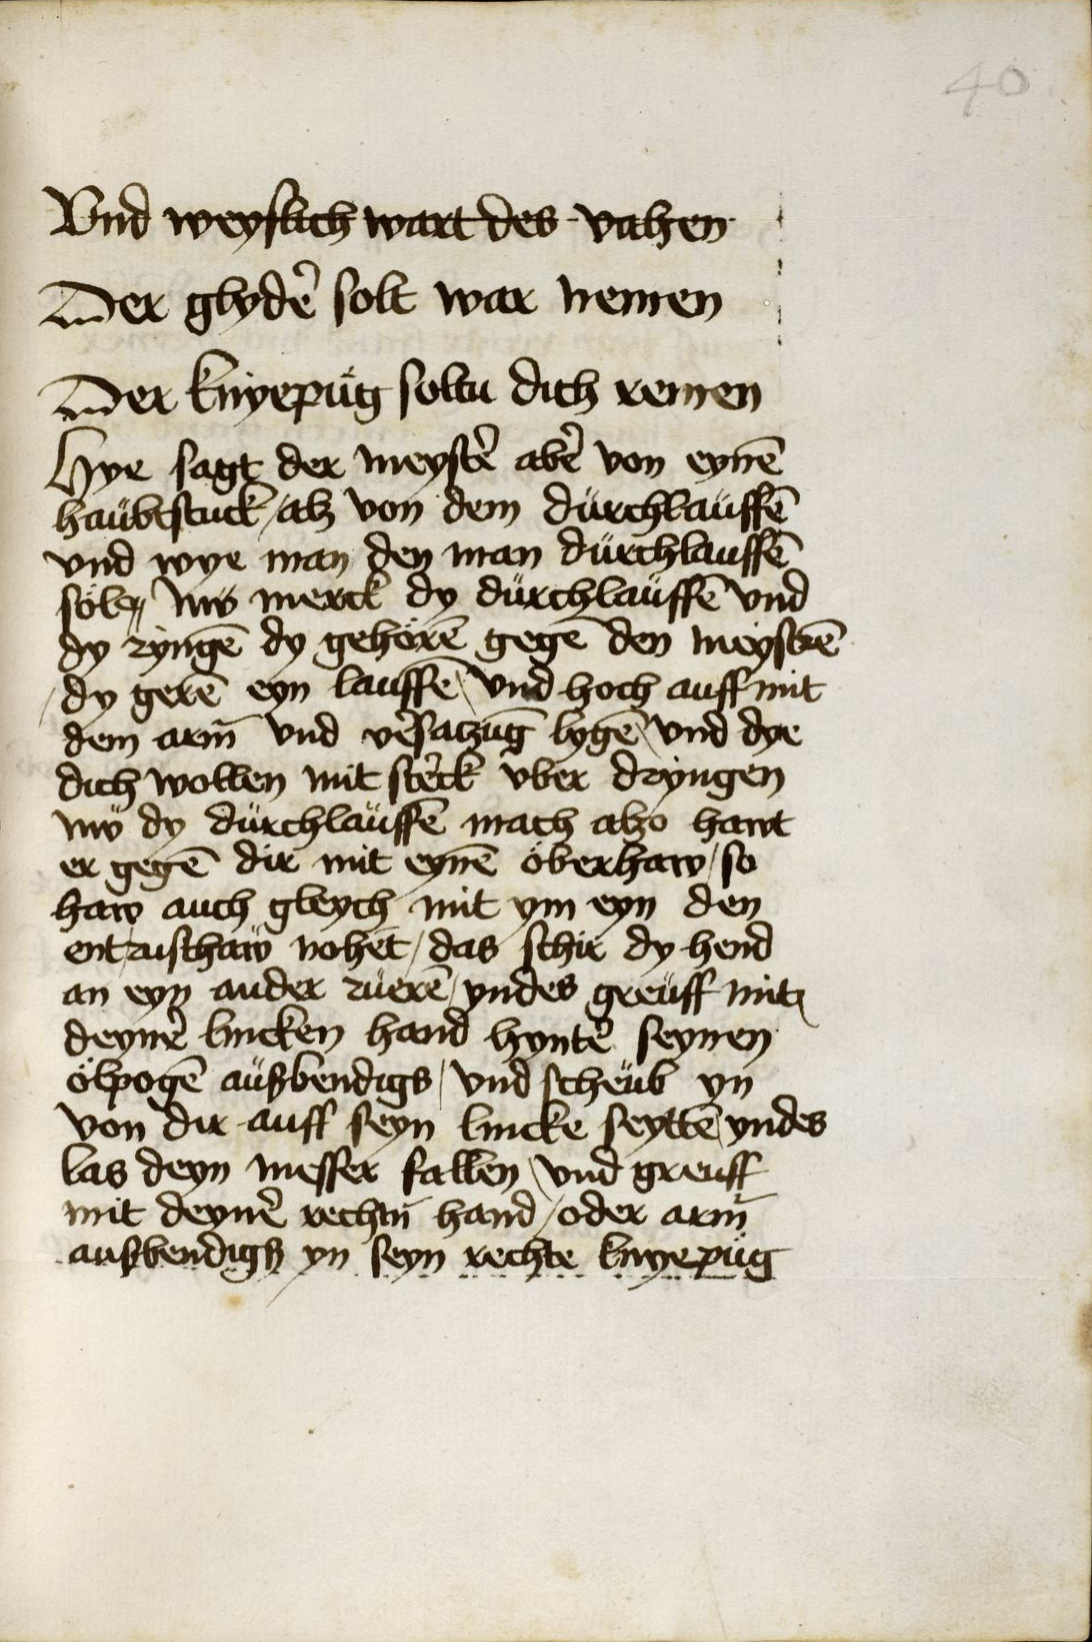 40
Vnd weyslich wart des vahen
Der glydẽ solt war nemen
Der knyepüg soltu dich remen
Hye sagt der meystẽ abẽ von eynẽ
haübtstuck / alz von dem dürchlaüffẽ
vnd wye man den man dürchlauffẽ
söl // Nw merck dy dürchlaüffẽ vnd
dy ryngẽ dy gehörẽ gegẽ den meystrẽ
/ dy gerẽ eyn lauffẽ / vnd hoch auff mit
dem arm̃ vnd vẽsatzũg lygẽ / vnd dye
dich wollen mit stẽck vber dryngen
nw dy dürchlaüffẽ mach alzo hawt
er gegẽ dir mit eynẽ öberhaw / so
haw auch gleych mit ym eyn den
entrüschaw nohet / das schir dy hend
an eyn ander rüerẽ / yndes greüff mit
deynẽ lincken hand hyntẽ seynen
ölpogẽ aüßbendigs / vnd scheüb yn
von dir auff seyn lincke seyttẽ / yndes
las deyn messer fallen / vnd greuff
mit deynẽ rechtñ hand / oder arm̃
außbendigß yn seyn rechte knyepüg